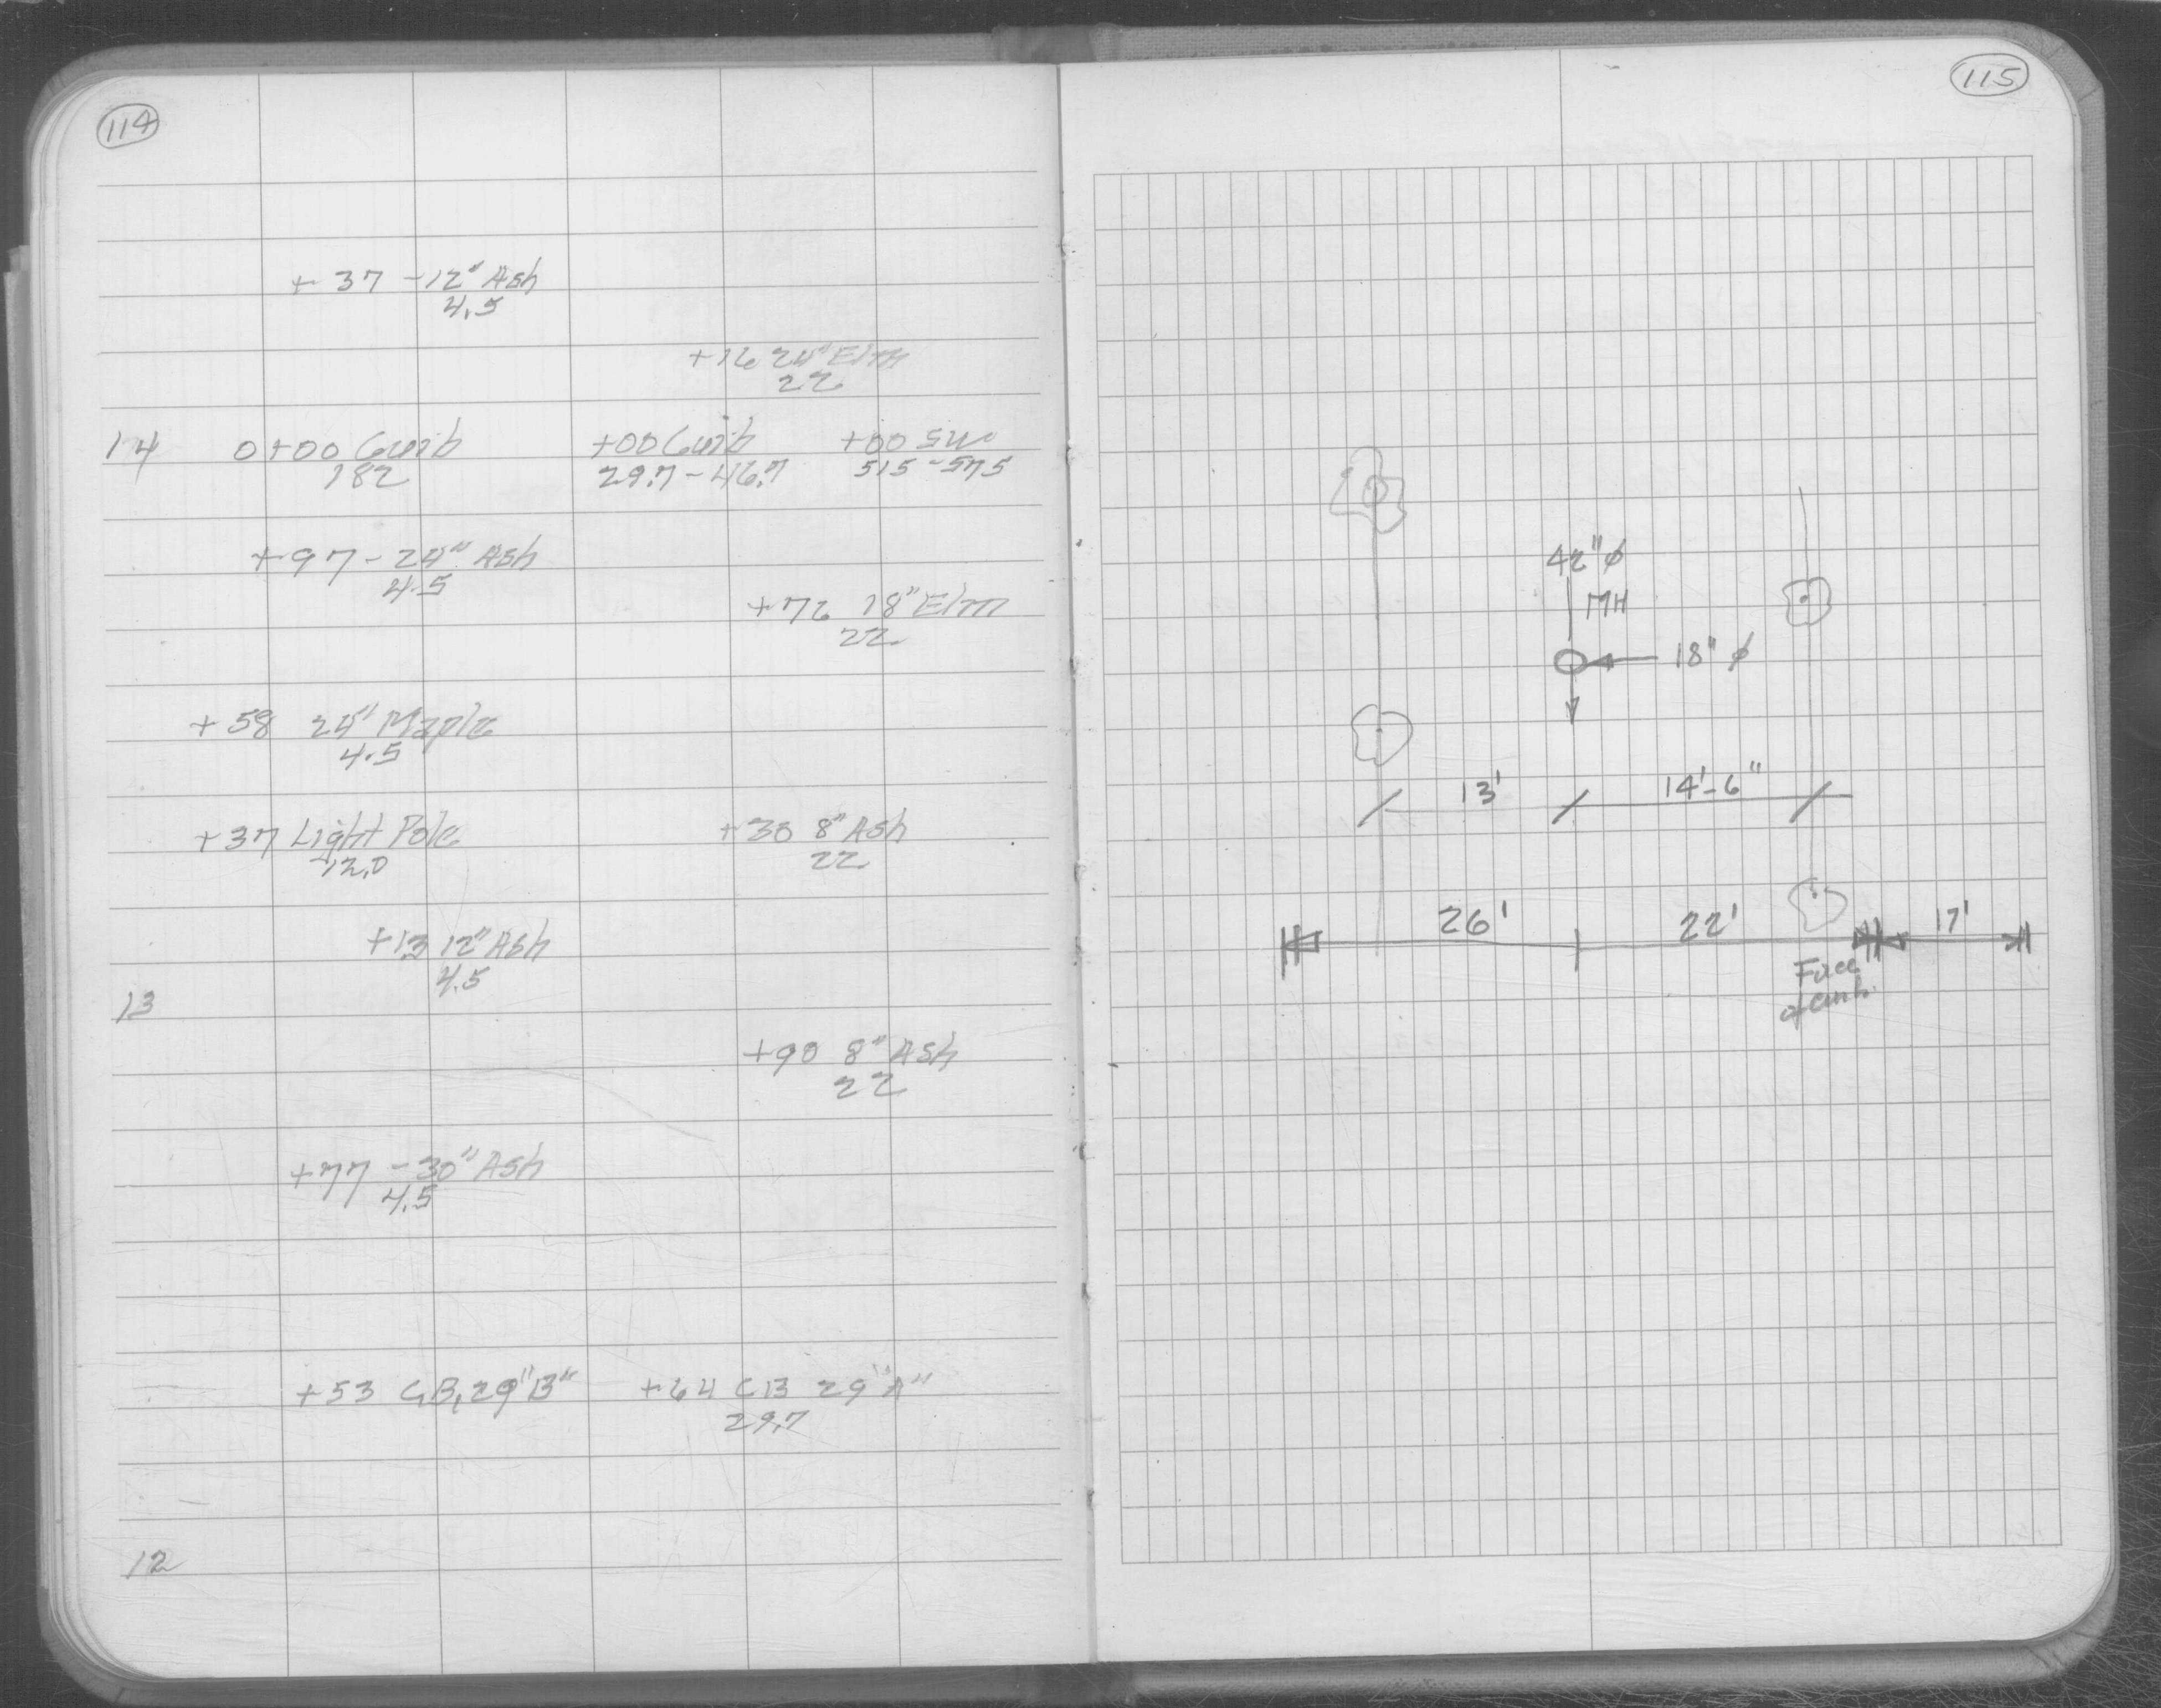 114
+37 -12" Ash
4.5
+16 24" Elm
22
14 0+00 Curb +00 Curb +00 SW
182 29.7-46.7 515-575
+97 - 24" Ash
4.5
+76 18" Elm
22
+58 24" Maple
4.5
+37 Light Pole +30 8" Ash
12.0 22
+13 12" Ash
4.5
13
+90 8" Ash
22
+77 - 30" Ash
4.5
+53 CB, 29 "B" +64 CB 29 "A"
29.7
12
115
42" ϕ
MH
18" ϕ
13' 14'-6"
26' 22' 17'
Face
of curb